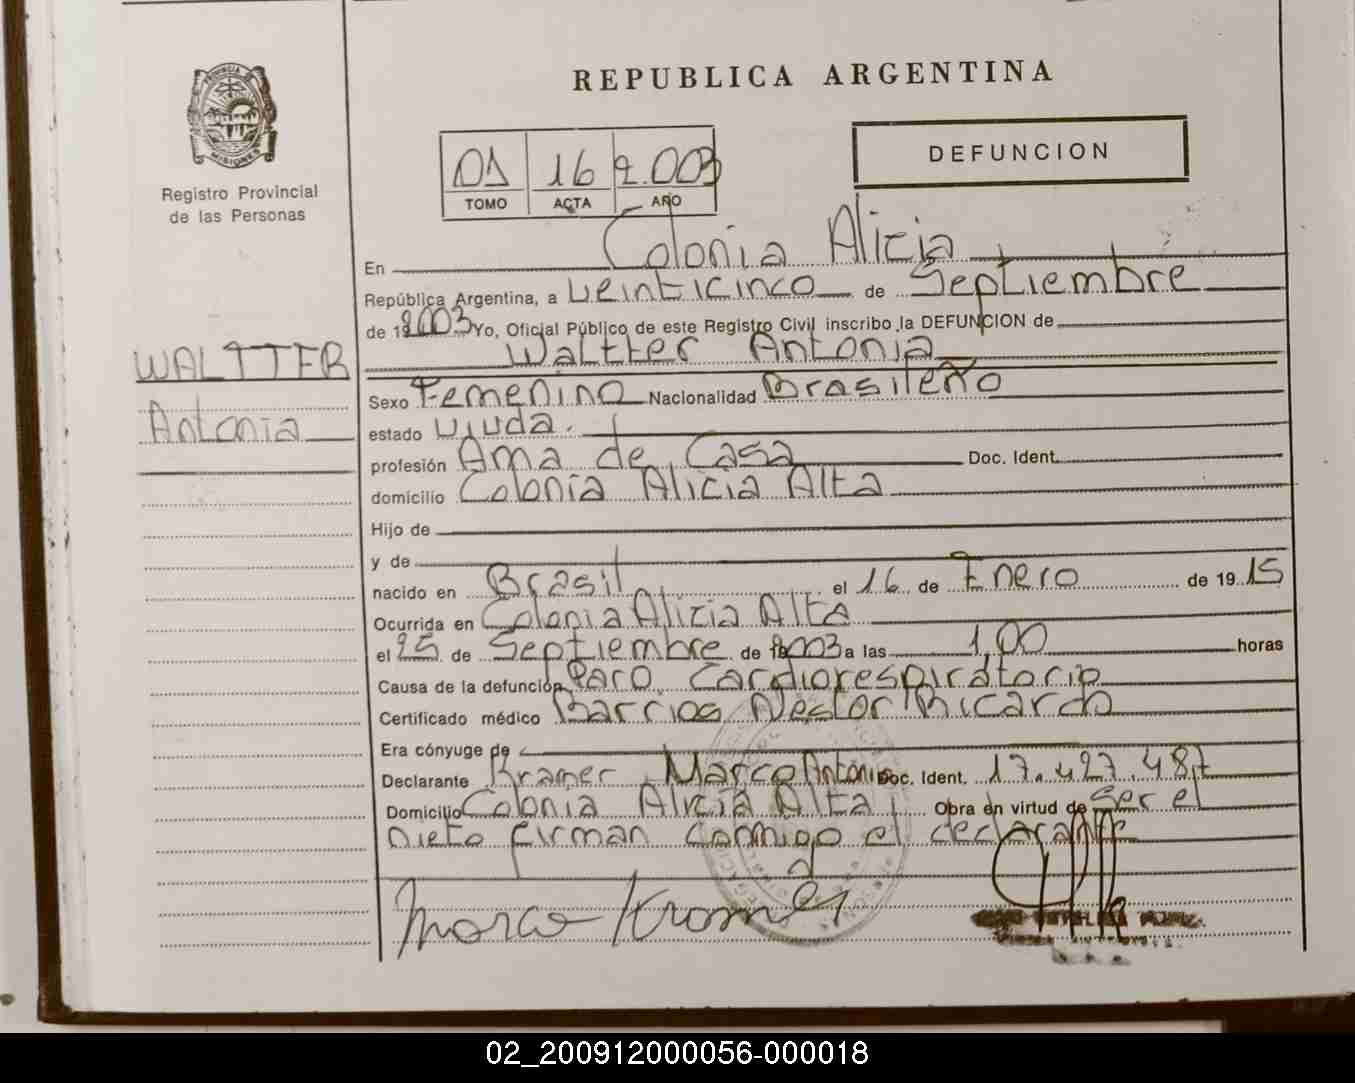 REPUBLICA ARGENTINA
PROVINCIA DE
MISIONES
Registro Provincial
de las Personas
DEFUNCION
01 16 2.003
TOMO ACTA AÑO
En Colonia Alicia
República Argentina, a Veinticinco de Septiembre
de 19 2003 Yo, Oficial Público de este Registro Civil inscribo la DEFUNCION de
WALTTER
Antonia
Waltter Antonia
Sexo Femenino Nacionalidad Brasileño
estado Viuda.
profesión Ama de Casa Doc. Ident.
domicilio Colonia Alicia Alta
Hijo de
y de
nacido en Brasil el 16 de Enero de 19 15
Ocurrida en Colonia Alicia Alta
el 25 de Septiembre de 2003 a las 1,00 horas
Causa de la defunción Paro Cardiorespiratorio
Certificado médico Barrios Nestor Ricardo
Era cónyuge de
Declarante Kramer Marco Antonio Doc. Ident. 17.427.487
Domicilio Colonia Alicia Alta Obra en virtud de Ser el
nieto firman conmigo el declarante
Marco Kramer
02_200912000056-000018